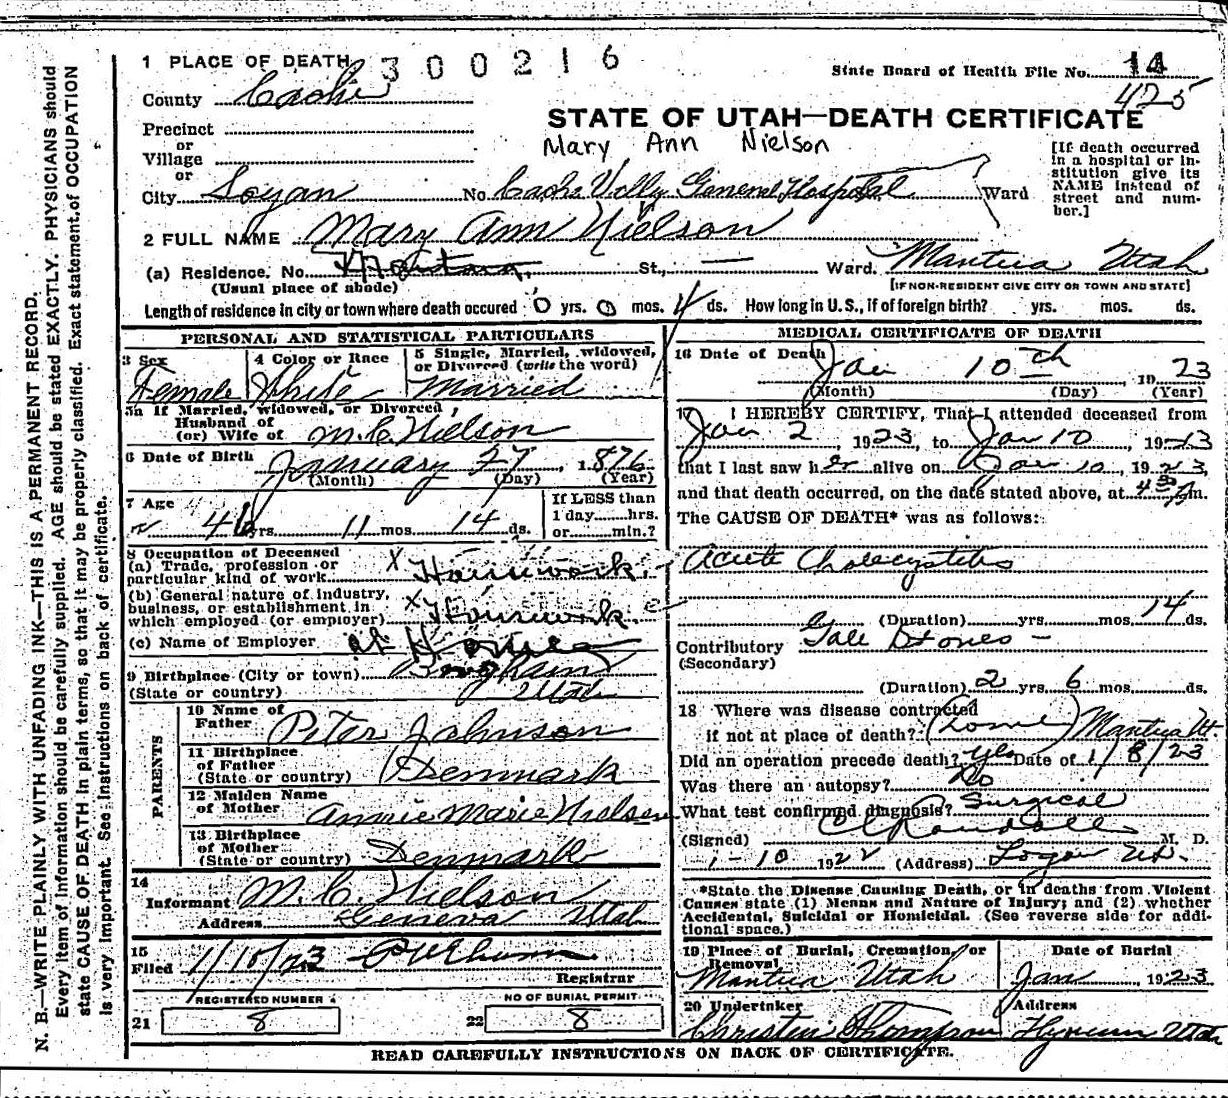 1 PLACE OF DEATH 3 0 0 2 1 6
State Board of Health File No. 14
425
County Cache
STATE OF UTAH—DEATH CERTIFICATE
Mary Ann Nielson
Precinct
or
Village
or
City Logan No. Cache Vally General Hospital Ward
[If death occurred
in a hospital or in-
stitution give its
NAME instead of
street and num-
ber.]
2 FULL NAME Mary Ann Nielson
(a) Residence. No. St., — Ward. Mantua Utah
(Usual place of abode) [IF NON-RESIDENT GIVE CITY OR TOWN AND STATE]
Length of residence in city or town where death occured 0 yrs. 0 mos. 4 ds. How long in U.S., if of foreign birth? yrs. mos. ds.
PERSONAL AND STATISTICAL PARTICULARS
3 Sex 4 Color or Race 5 Single, Married, widowed,
or Divorced (write the word)
Female White Married
5a If Married, widowed, or Divorced
Husband of
(or) Wife of M. C. Nielson
6 Date of Birth January 27, 1876
(Month) (Day) (Year)
7 Age If LESS than
46 yrs. 11 mos. 14 ds. 1 day hrs.
or min.?
8 Occupation of Deceased
(a) Trade, profession or
particular kind of work x Housework
(b) General nature of industry,
business, or establishment in
which employed (or employer) x Housework
(c) Name of Employer at Home
9 Birthplace (City or town)
(State or country) Utah
PARENTS
10 Name of
Father Peter Johnson
11 Birthplace
of Father
(State or country) Denmark
12 Maiden Name
of Mother Annie Marie Nielsen
13 Birthplace
of Mother
(State or country) Denmark
14
Informant M. C. Nielson
Address Geneva Utah
15
Filed 1/10/23
Registrar
REGISTERED NUMBER
21 8
NO OF BURIAL PERMIT
22 8
MEDICAL CERTIFICATE OF DEATH
16 Date of Death Jan 10th 1923
(Month) (Day) (Year)
17 I HEREBY CERTIFY, That I attended deceased from
Jan 2 1923, to Jan 10, 1923
that I last saw her alive on Jan 10, 1923,
and that death occurred, on the date stated above, at 4 30 m.
The CAUSE OF DEATH* was as follows:
Acute Cholecystitis
(Duration) yrs. mos. 14 ds.
Contributory Gall Stones —
(Secondary)
(Duration) 2 yrs. 6 mos. ds.
18 Where was disease contracted
if not at place of death? (home) Mantua Ut.
Did an operation precede death? Yes Date of 1/8/23
Was there an autopsy? No
What test confirmed diagnosis? Surgical
(Signed) C C Randall M. D.
1-10 1922 (Address) Logan Ut.
*State the Disease Causing Death, or in deaths from Violent
Causes state (1) Means and Nature of Injury; and (2) whether
Accidental, Suicidal or Homicidal. (See reverse side for addi-
tional space.)
19 Place of Burial, Cremation, or
Removal Date of Burial
Mantua Utah Jan 1923
20 Undertaker Address
Christen Thompson Hyrum Utah
READ CAREFULLY INSTRUCTIONS ON BACK OF CERTIFICATE.
N. B.—WRITE PLAINLY WITH UNFADING INK—THIS IS A PERMANENT RECORD.
Every item of information should be carefully supplied. AGE should be stated EXACTLY. PHYSICIANS should
state CAUSE OF DEATH in plain terms, so that it may be properly classified. Exact statement of OCCUPATION
is very important. See instructions on back of certificate.